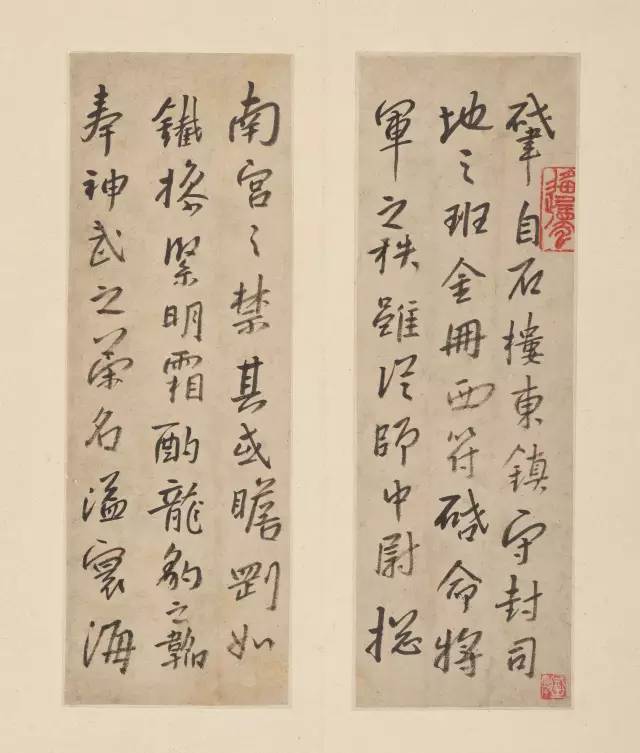 肇自石樓東鎮守封司
地之班金冊西符啓命將
軍之秩雖從師中尉揔
南宮之禁其或瞻剛如
鐵操緊明霜酌龍豹之韜
奉神武之策名溢寰海